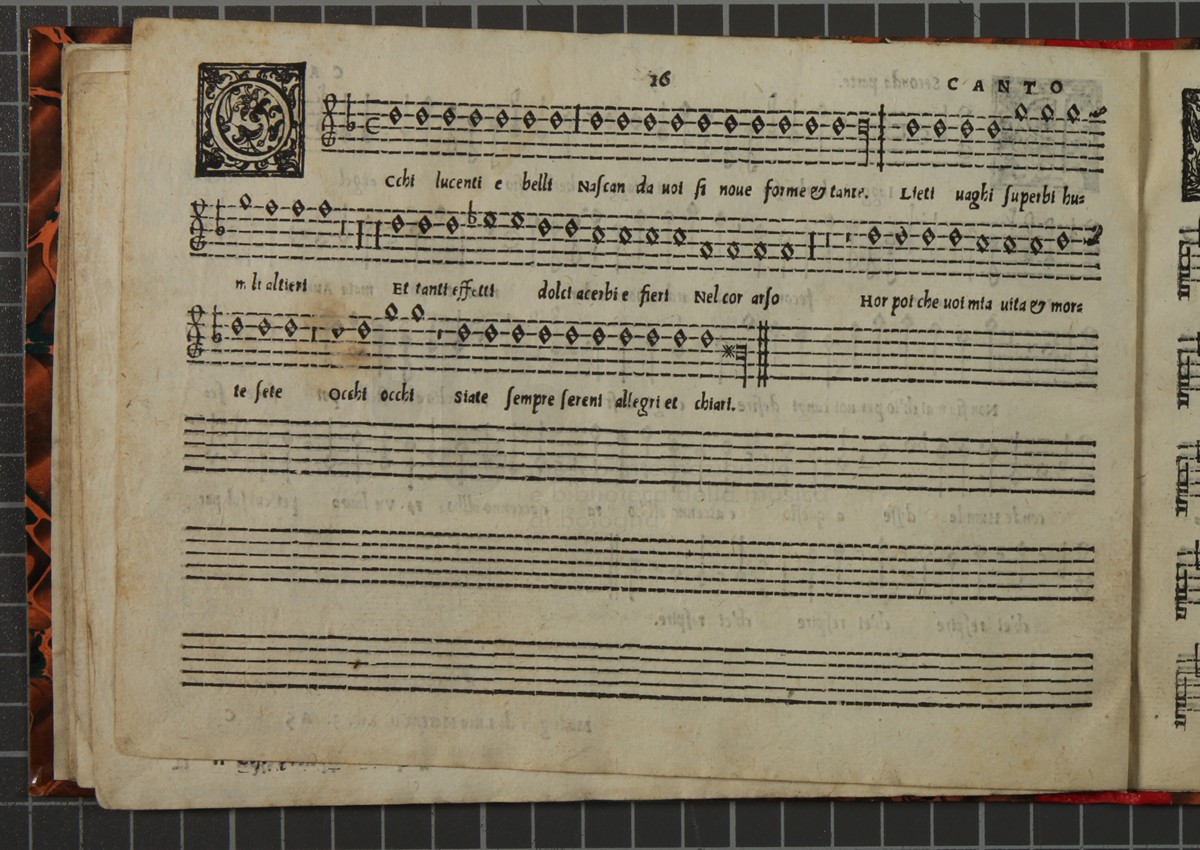 16 CANTO
O
Cchi lucenti e belli Naſcan da uoi ſi noue forme & tante. Lieti uaghi ſuperbi hu=
m li altieri Et tanti effetti dolci acerbi e fieri Nel cor arſo Hor poi che uoi mia uita & mor=
te ſete Occhi occhi Siate ſempre ſereni allegri et chiari.